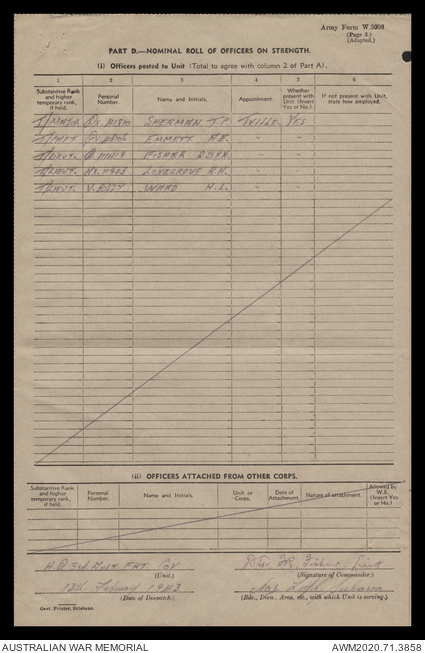 Army Form W.3008
(Page 2.)
(Adapted.)
PART D.—NOMINAL ROLL OF OFFICERS ON STRENGTH.
(i) Officers posted to Unit (Total to agree with column 2 of Part A).
1 2 3 4 5 6
Substantive Rank and higher temporary rank, if held. Personal Number. Name and Initials. Appointment. Whether present with Unit (Insert Yes or No.) If not present with Unit, state how employed.
T/MAJOR SHERMAN T.C. TVILLE. YES
T/CAPT EMMETT " "
T/LIEUT. FISHER " "
T/LIEUT. LOVEGROVE " "
T/LIEUT. WARD A.L. " "
(ii) OFFICERS ATTACHED FROM OTHER CORPS.
Substantive Rank and higher temporary rank, if held. Personal Number. Name and Initials. Unit or Corps. Date of Attachment. Nature of attachment. Allowed by W.E. (Insert Yes or No.)
H.Q. 3rd Aust. Coy Fisher Lieut
(Unit.) (Signature of Commander.)
13th February 1943
(Date of Despatch.) (Bde., Divn., Area, etc., with which Unit is serving.)
Govt. Printer, Brisbane.
AUSTRALIAN WAR MEMORIAL AWM2020.71.3858